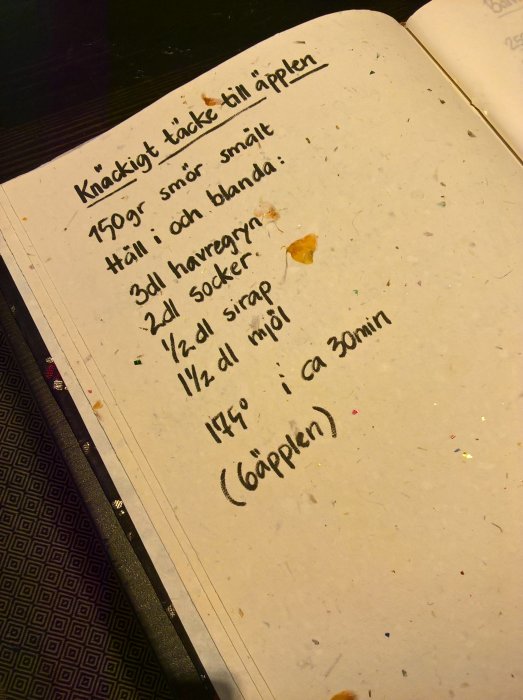 Knäckigt täcke till äpplen
150gr smör smält
Häll i och blanda:
3dl havregryn
2dl socker
1/2dl sirap
1 1/2 dl mjöl
175° i ca 30min
(6äpplen)